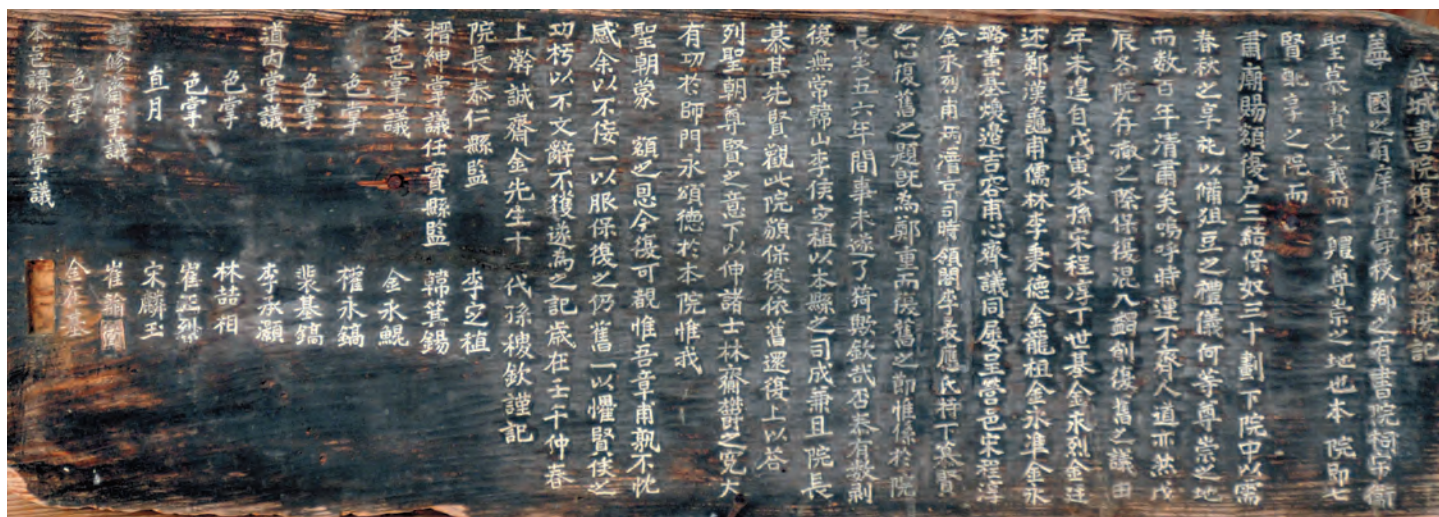 武城書院復戶保奴還復記
蓋 國之有庠序學校鄉之有書院猗歟衛
聖慕賢之義而一體尊崇之地也本 院即七
賢配享之院而
肅廟賜額復戶三結保奴三十劃下院中以需
春秋之享祀以備俎豆之禮儀何等尊崇之地
而數百年清肅矣嗚呼時運不齊人道亦然戊
辰冬院存撤之際保復混入 創復舊之議因
年未遑自戊寅本孫宋程淳丁世基金永烈金廷
述鄭漢 甫儒林李秉德金龍祖金永準金永
璐 基煥 吉容甫心齊議同屢呈營邑宋程淳
金永烈甫 時領閤李 應氏特下慕賢
之心復舊之題旣爲鄭重而復舊之節惟係於院
長至五六年間事未遂了猗歟欽哉否泰有數剝
復無常韓山李侯之植以本縣之司成兼且院長
慕其先賢觀此院頹保復依舊還復上以答
列聖朝尊賢之意下以伸諸士林齋鬱之冤大
有功於師門永頌德於本院惟我
聖朝蒙 額之恩今復可觀惟吾章甫孰不忱
感余以不佞一以服保復之仍舊一以懼賢侯之
功朽以不文辭不獲遂爲之記歲在壬午仲春
上澣誠齋金先生十一代孫 欽謹記
院長泰仁縣監 李之植
搢紳掌議任實縣監 韓箕錫
本邑掌議 金永鯤
色掌 權永鎬
色掌 裴基鎬
道內掌議 李承灝
色掌 林喆相
色掌 崔 烈
直月 宋麟玉
講修齋掌議 崔翰
色掌 金 基
本邑講修齋掌議